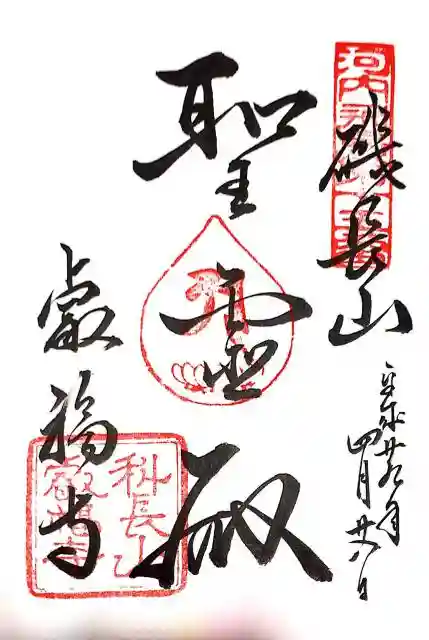 磯長山
平成廿九年
四月廿八日
聖霊殿
叡福寺